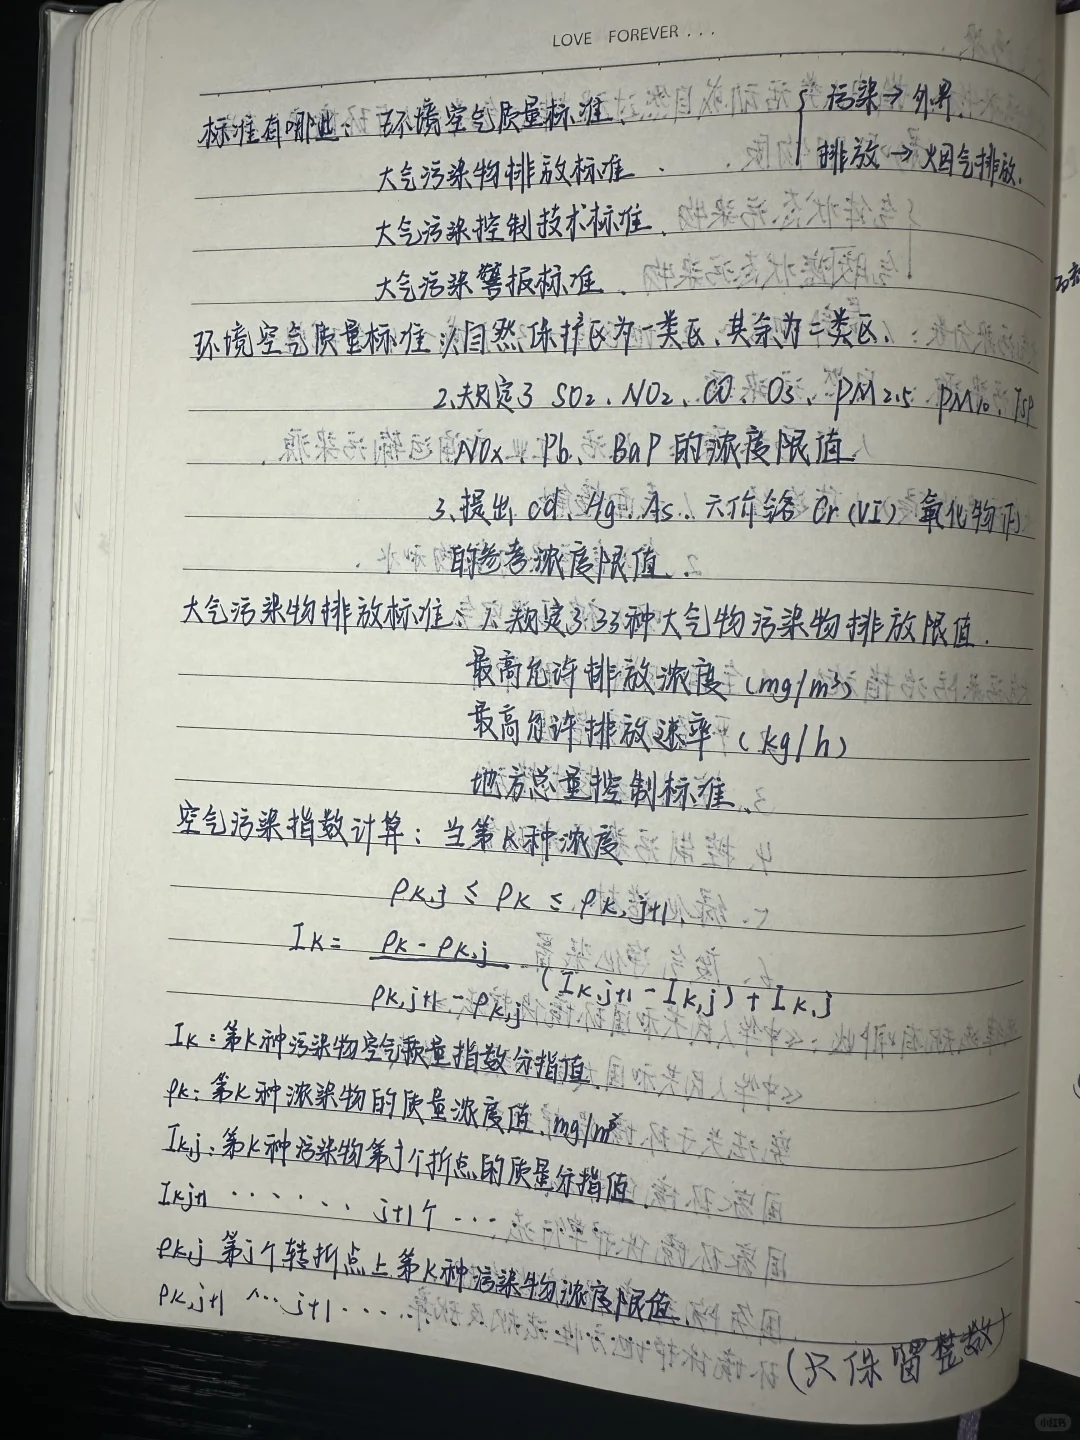 LOVE FOREVER...
标准有哪些：环境空气质量标准、 污染→外界
大气污染物排放标准 排放→烟气排放.
大气污染控制技术标准.
大气污染警报标准.
环境空气质量标准 1.自然保护区为一类区、其余为二类区.
2.规定3 SO2、NO2、CO、O3、PM2.5 PM10、TSP
NOx、Pb、BaP的浓度限值
3、提出 cd、Hg、As、六价铬 Cr(VI) 氧化物
的参考浓度限值.
大气污染物排放标准：1.规定3.33种大气物污染物排放限值.
最高允许排放浓度(mg/m³)
最高允许排放速率(kg/h)
地方总量控制标准、
空气污染指数计算：当第K种浓度
ρK,j ≤ ρK ≤ ρK,j+1.
IK= ρK-ρK,j / ρK,j+1-ρK,j (IK,j+1-IK,j)+IK,j
IK：第K种污染物空气质量指数分指值.
ρK：第K种浓染物的质量浓度值、mg/m³
IK,j：第K种污染物第j个折点的质量分指值.
IKj+1 ······ j+1个 ···
ρK,j 第j个转折点上第K种污染物浓度限值.
ρK,j+1 ···j+1····
(只保留整数)
小红书